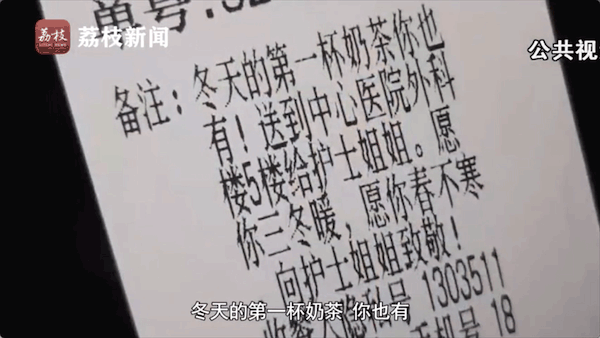 荔枝
荔枝新闻
公共视
单号:
备注:冬天的第一杯奶茶你也
有!送到中心医院外科
楼5楼给护士姐姐。愿
你三冬暖,愿你春不寒
向护士姐姐致敬!
1303511
手机号 18
冬天的第一杯奶茶 你也有